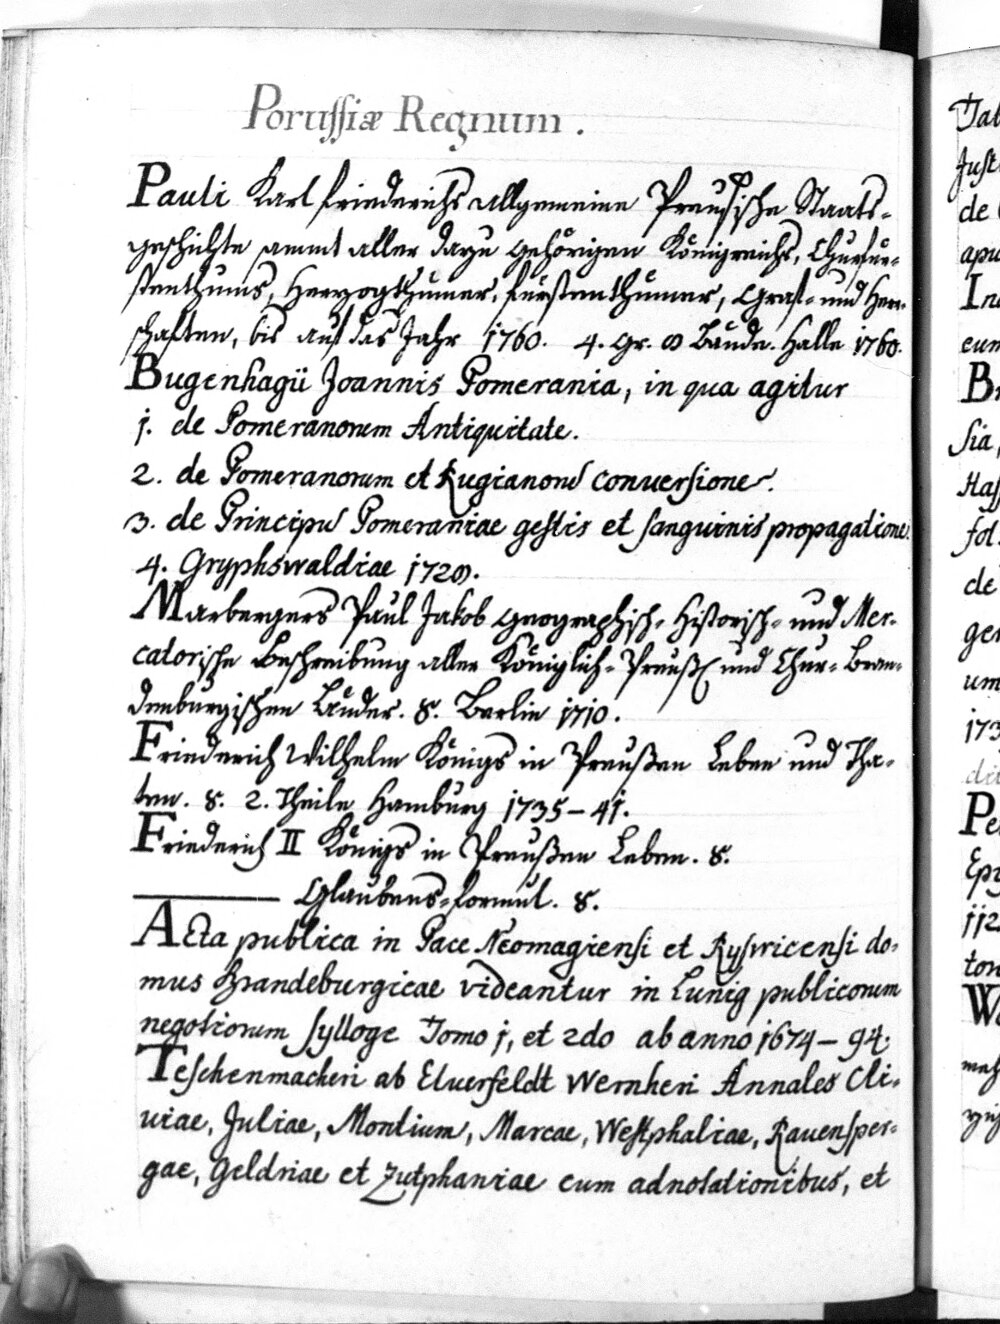 Porussiæ Regnum.
Pauli Karl friederichs allgemeine Preussische Staats-
geschichte sammt aller dazu gehörigen Königreichs, Churfür-
stenthums, Herzogthümer, fürstenthümer, Graf- und Herr-
schaften, bis auf das Jahr 1760. 4. gr. 8 Bände. Halle 1760.
Bugenhagii Joannis Pomerania, in qua agitur
1. de Pomeranorum Antiquitate.
2. de Pomeranorum et Rugianorum conversione.
3. de Principum Pomeraniae gestis et sanguinis propagatione.
4. Gryphswaldiae 1728.
Marbergers Paul Jakob Geographisch- Historisch- und Mer-
catorische Beschreibung aller Königlich- Preuß. und Chur- Bran-
denburgischen Länder. 8. Berlin 1710.
Friederich Wilhelm Königs in Preußen Leben und Tha-
ten. 8. 2. Theile Hamburg 1735-41.
Friederich II Königs in Preußen Leben. 8.
——— Glaubens-formul. 8.
Acta publica in Pace Neomagiensi et Rysvicensi do-
mus Brandeburgicae videantur in Lunig publicorum
negotiorum sylloge Tomo 1, et 2do ab anno 1674-94.
Teschenmacheri ab Elverfeldt Wernheri Annales Cli-
viae, Juliae, Montium, Marcae, Westphaliae, Ravensper-
gae, Geldriae et Zutphaniae cum adnotationibus, et
Tab
Just
de
apu
eum
Br
sia,
Hass
fol.
de
ger
um
173
Pe
Epi
112
ton
W